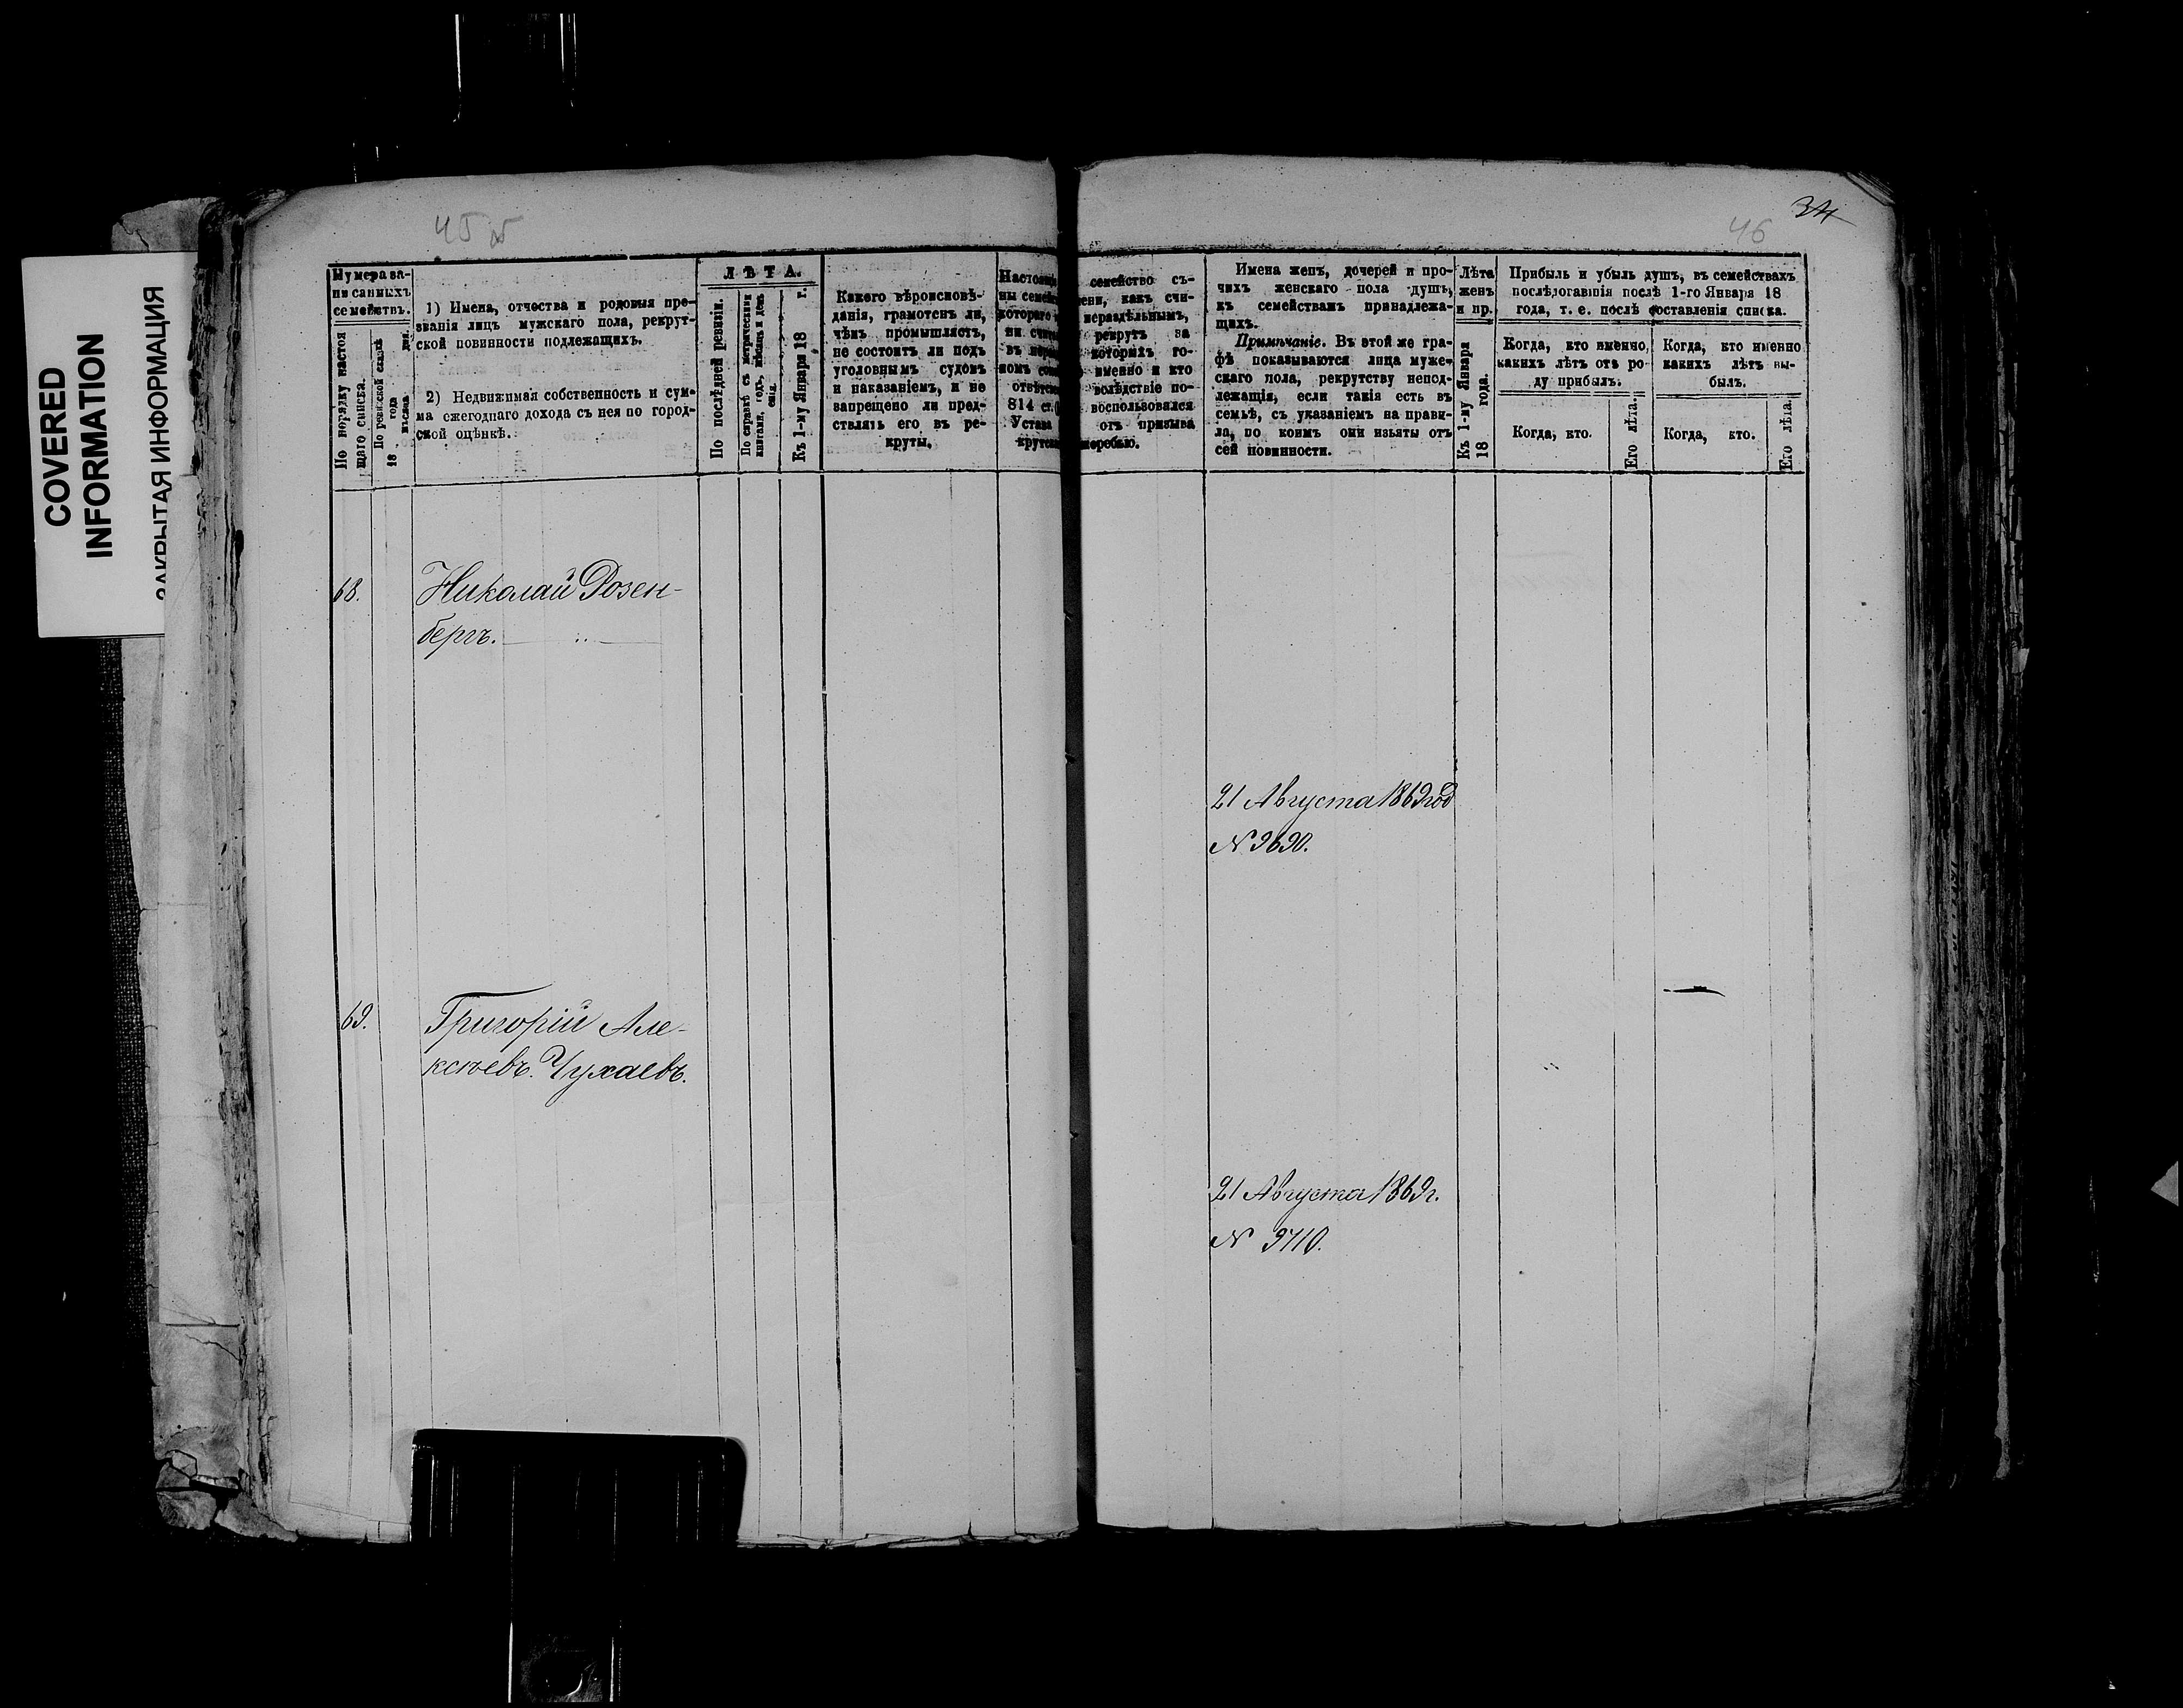 COVERED
INFORMATION
ЗАКРЫТАЯ ИНФОРМАЦИЯ
45
46
34
Нумера за-
писанныхъ
семействъ.
По порядку настоя
щаго списка.
По ревизской сказкѣ
18 года
мѣсяца дня.
1) Имена, отчества и родовыя про-
званія лицъ мужскаго пола, рекрут-
ской повинности подлежащихъ.
2) Недвижимая собственность и сум-
ма ежегоднаго дохода съ нея по город-
ской оцѣнкѣ.
ЛѢТА.
По послѣдней ревизіи.
По справкѣ съ метрическими
книгами, годъ, мѣсяцъ и день
Къ 1-му Января 18 г.
Какого вѣроисповѣ-
данія, грамотенъ ли,
чѣмъ промышляетъ,
не состоитъ ли подъ
уголовнымъ судомъ
и наказаніемъ, и не
запрещено ли пред-
ставлять его въ ре-
круты.
семейство съ-
какъ счи-
нераздѣльнымъ,
рекрутъ за
которыхъ го-
именно и кто
вслѣдствіе по-
814 ст. воспользовался
Устава отъ призыва
жеребью.
Имена женъ, дочерей и про-
чихъ женскаго пола душъ,
къ семействамъ принадлежа-
щихъ.
Примѣчаніе. Въ этой же гра-
фѣ показываются лица муже-
скаго пола, рекрутству непод-
лежащія, если такія есть въ
семьѣ, съ указаніемъ на прави-
ла, по коимъ они изъяты отъ
сей повинности.
Лѣта
женъ
и пр.
Къ 1-му Января
18 года.
Прибыль и убыль душъ, въ семействахъ
послѣдовавшія послѣ 1-го Января 18
года, т. е. послѣ составленія списка.
Когда, кто именно,
какихъ лѣтъ отъ ро-
ду прибылъ.
Когда, кто именно
какихъ лѣтъ вы-
былъ.
Когда, кто.
Его лѣта.
Когда, кто.
Его лѣта.
68.
Николай Розен-
бергъ.
21 Августа 1869 год
N 9690.
69.
Григорій Але-
ксѣевъ Чухаевъ.
21 Августа 1869 г.
N 9710.